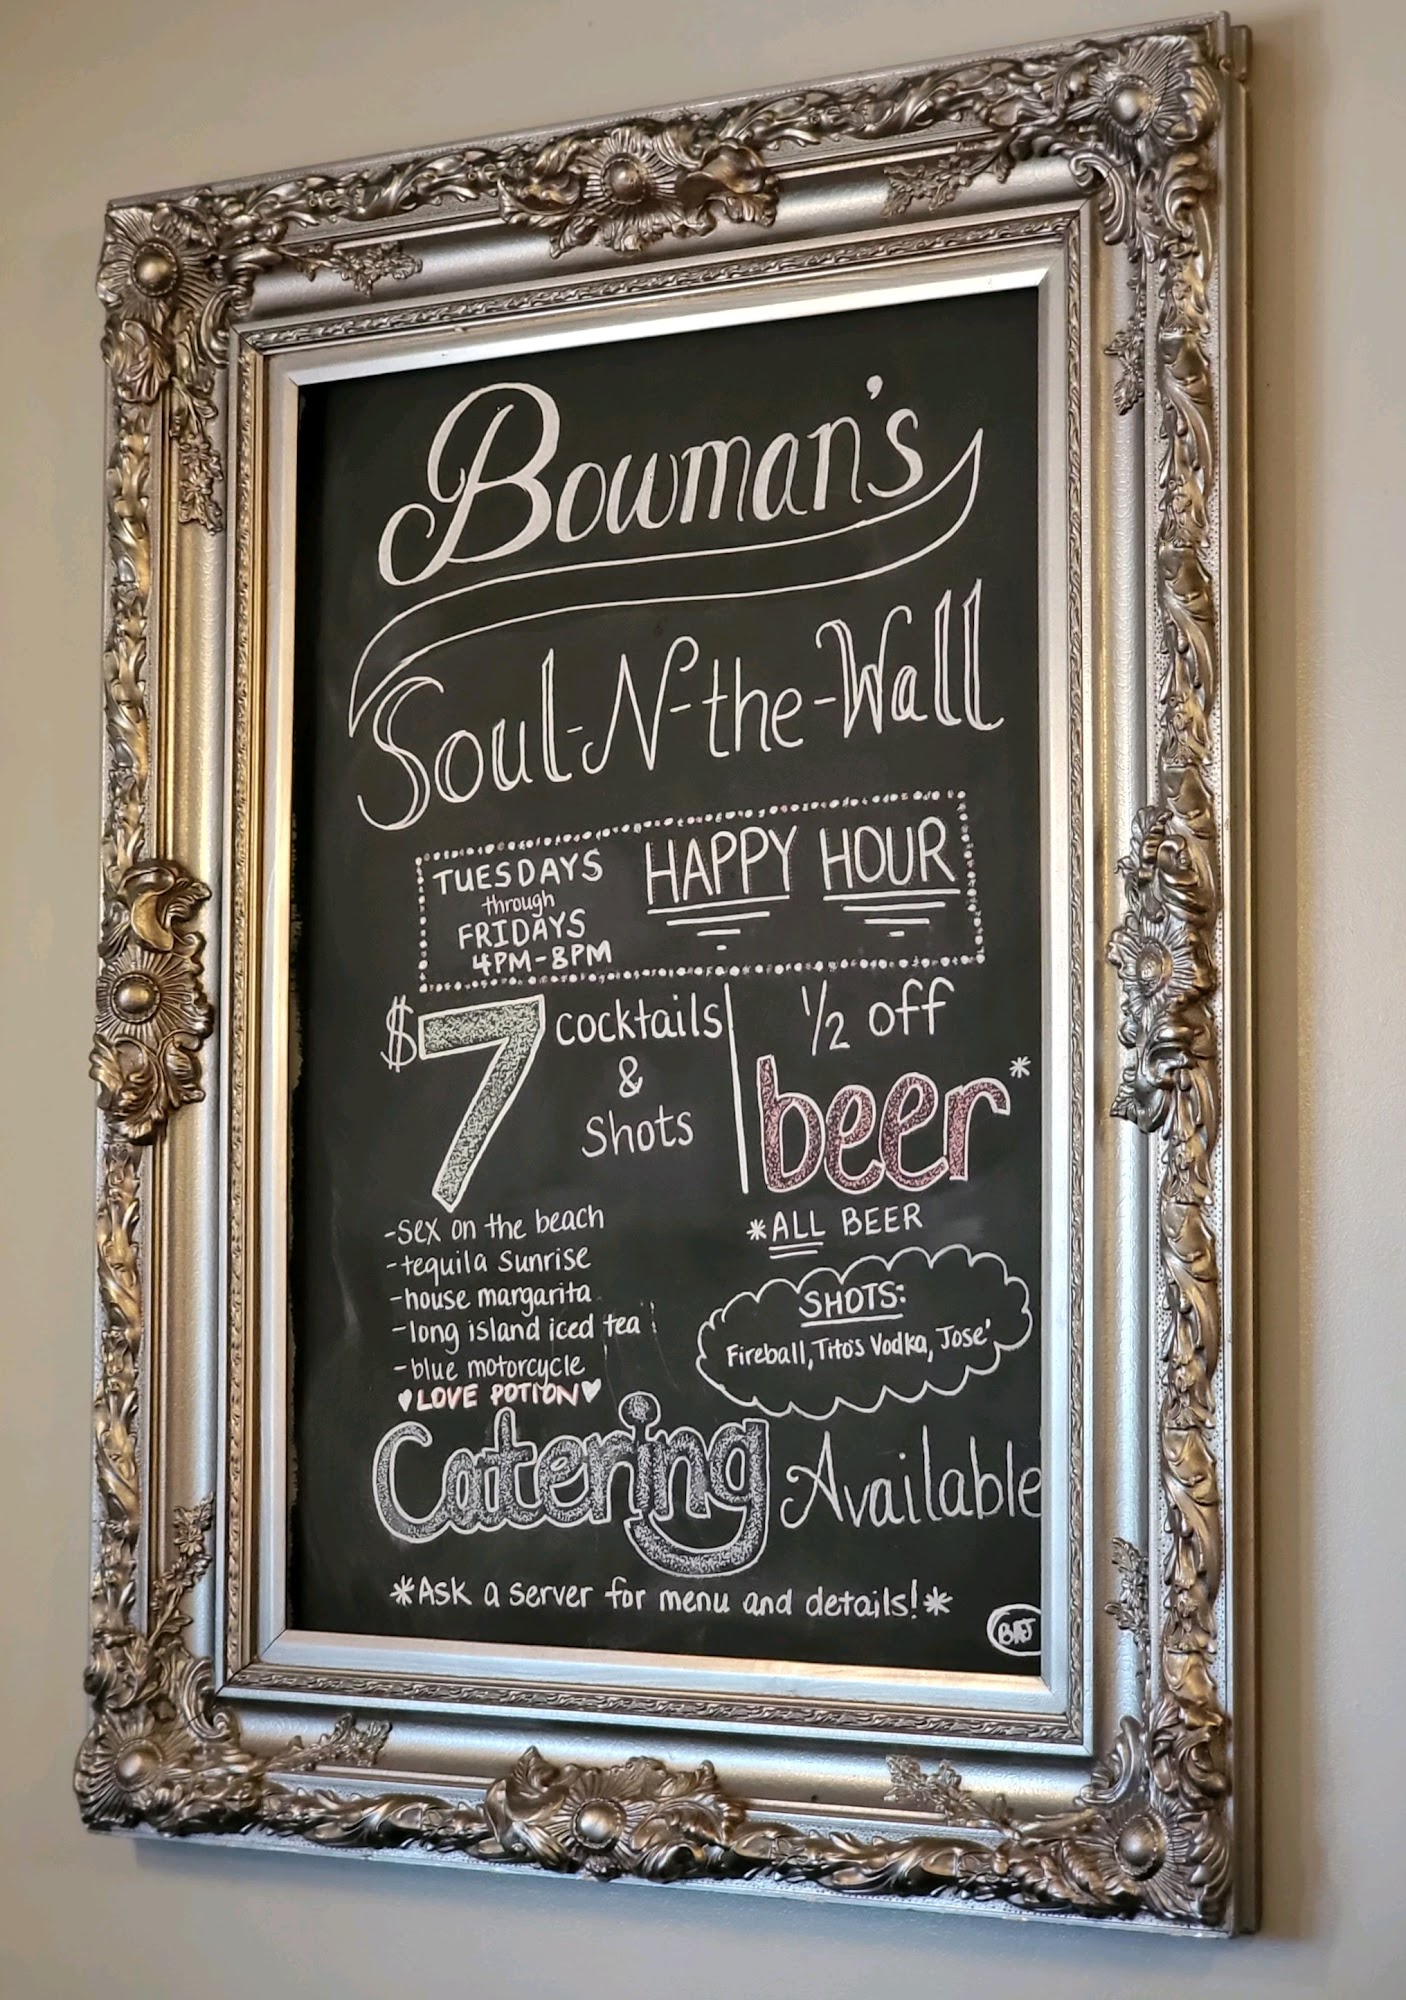 Bowman's
Soul-N-the-Wall
TUESDAYS
through
FRIDAYS
4PM-8PM
HAPPY HOUR
$7 cocktails
&
Shots
1/2 off
beer*
*ALL BEER
-sex on the beach
-tequila sunrise
-house margarita
-long island iced tea
-blue motorcycle
♥LOVE POTION♥
SHOTS:
Fireball, Tito's Vodka, Jose'
Catering Available
*Ask a server for menu and details!*